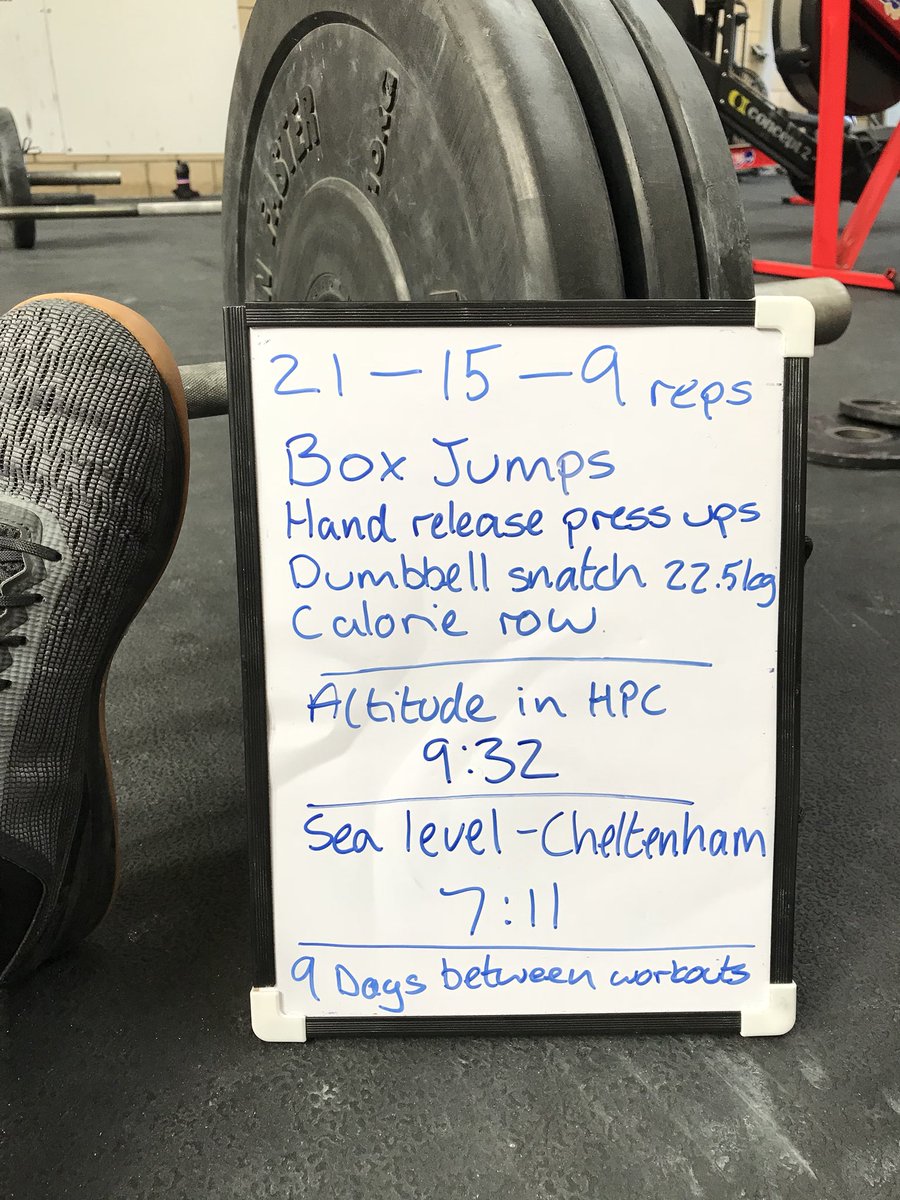 MASTER
10KG
CONCEPT 2
21 – 15 – 9 reps
Box Jumps
Hand release press ups
Dumbbell snatch 22.5kg
Calorie row
Altitude in HPC
9:32
Sea level - Cheltenham
7:11
9 Days between workouts